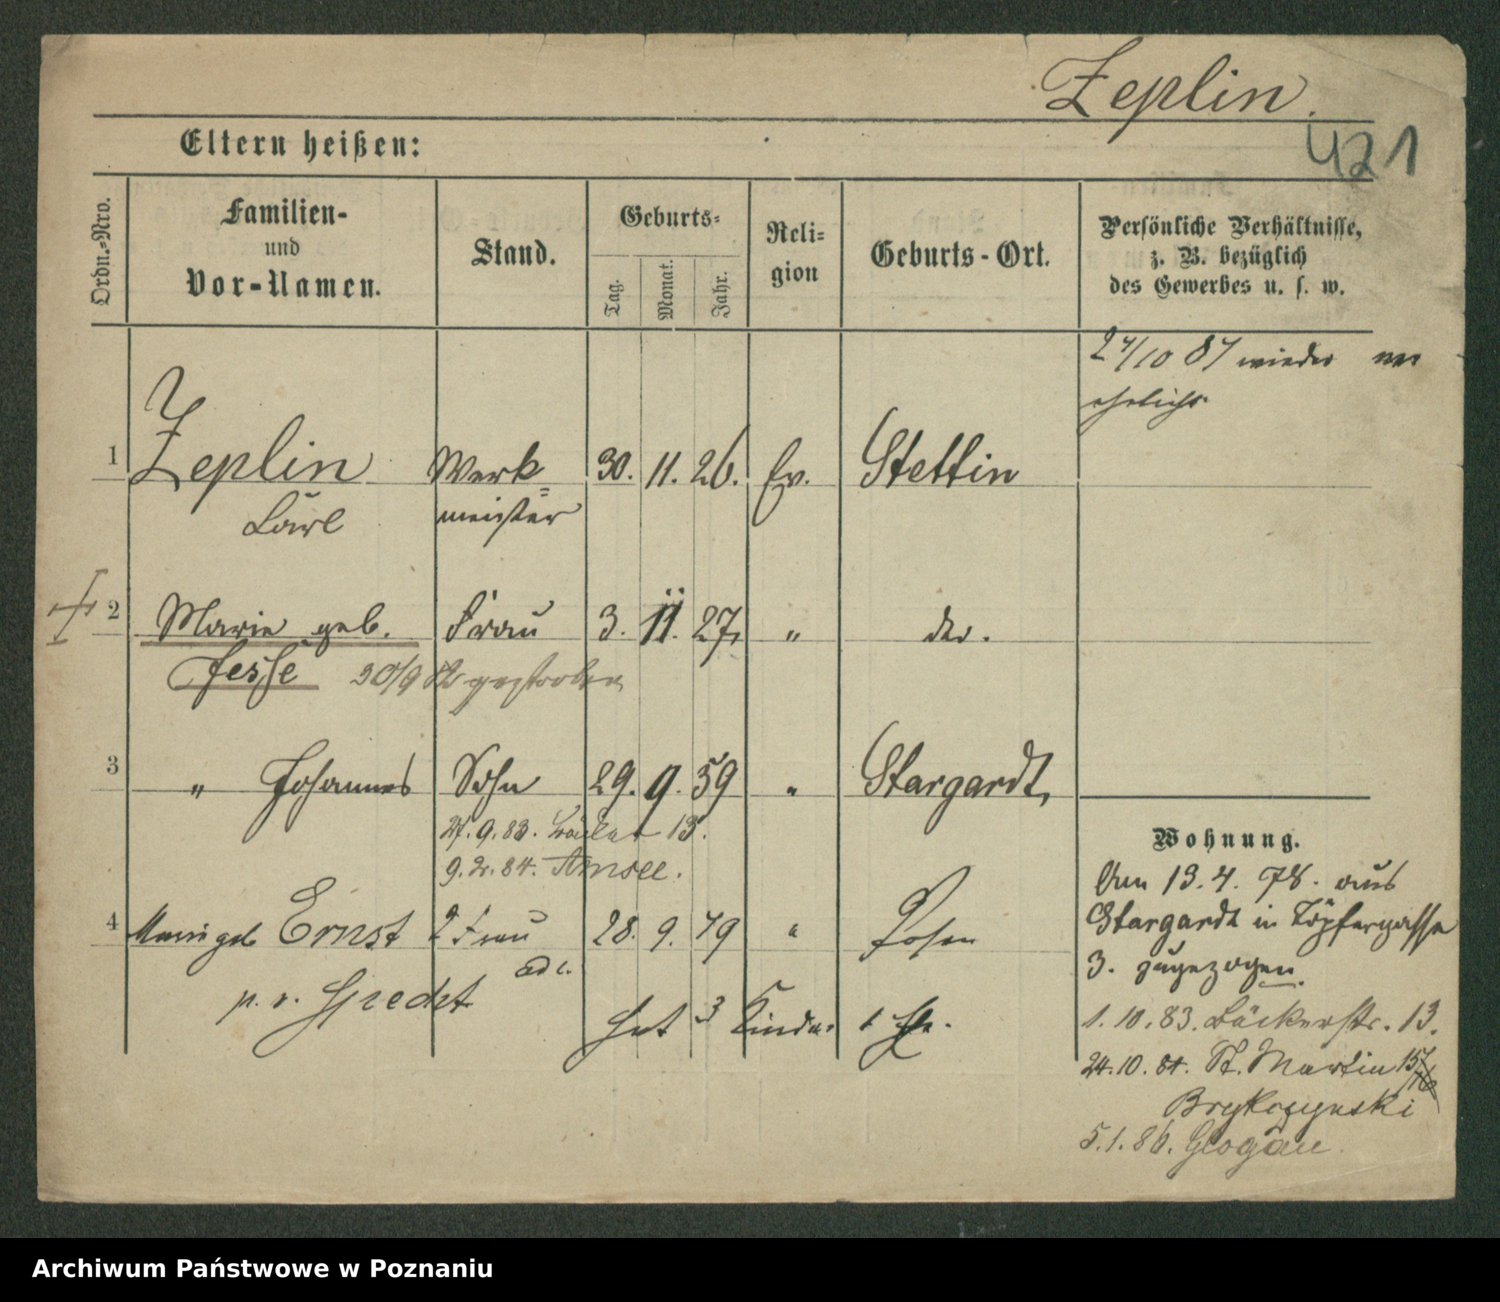 Zeplin.
421
Eltern heißen:
Ordn.-Nro.
Familien-
und
Vor-Namen.
Stand.
Geburts-
Tag.
Monat.
Jahr.
Reli-
gion
Geburts-Ort.
Persönliche Verhältnisse,
z. B. bezüglich
des Gewerbes u. s. w.
24/10 84 wieder ver
ehelicht
1 Zeplin Werk= 30. 11. 26. Ev. Stettin
Carl meister
2 Marie geb. Frau 3. 11. 27. " do.
Jesse 30/9 82 gestorben
3 " Johannes Sohn 29. 9. 59 " Stargardt
27. 9. 83. 13.
9. 2. 84. Amsee.
4 Marie geb Ernst 2 Frau 28. 9. 49 " Posen
p. v.
hat 3 Kinder 1 Ehe.
Wohnung.
Am 13. 4. 78. aus
Stargardt in Töpfergasse
3. zugezogen.
1. 10. 83. Bäckerstr. 13.
24. 10. 84. St. Martin 15/16
Brykczynski
5. 1. 86. Glogau.
Archiwum Państwowe w Poznaniu